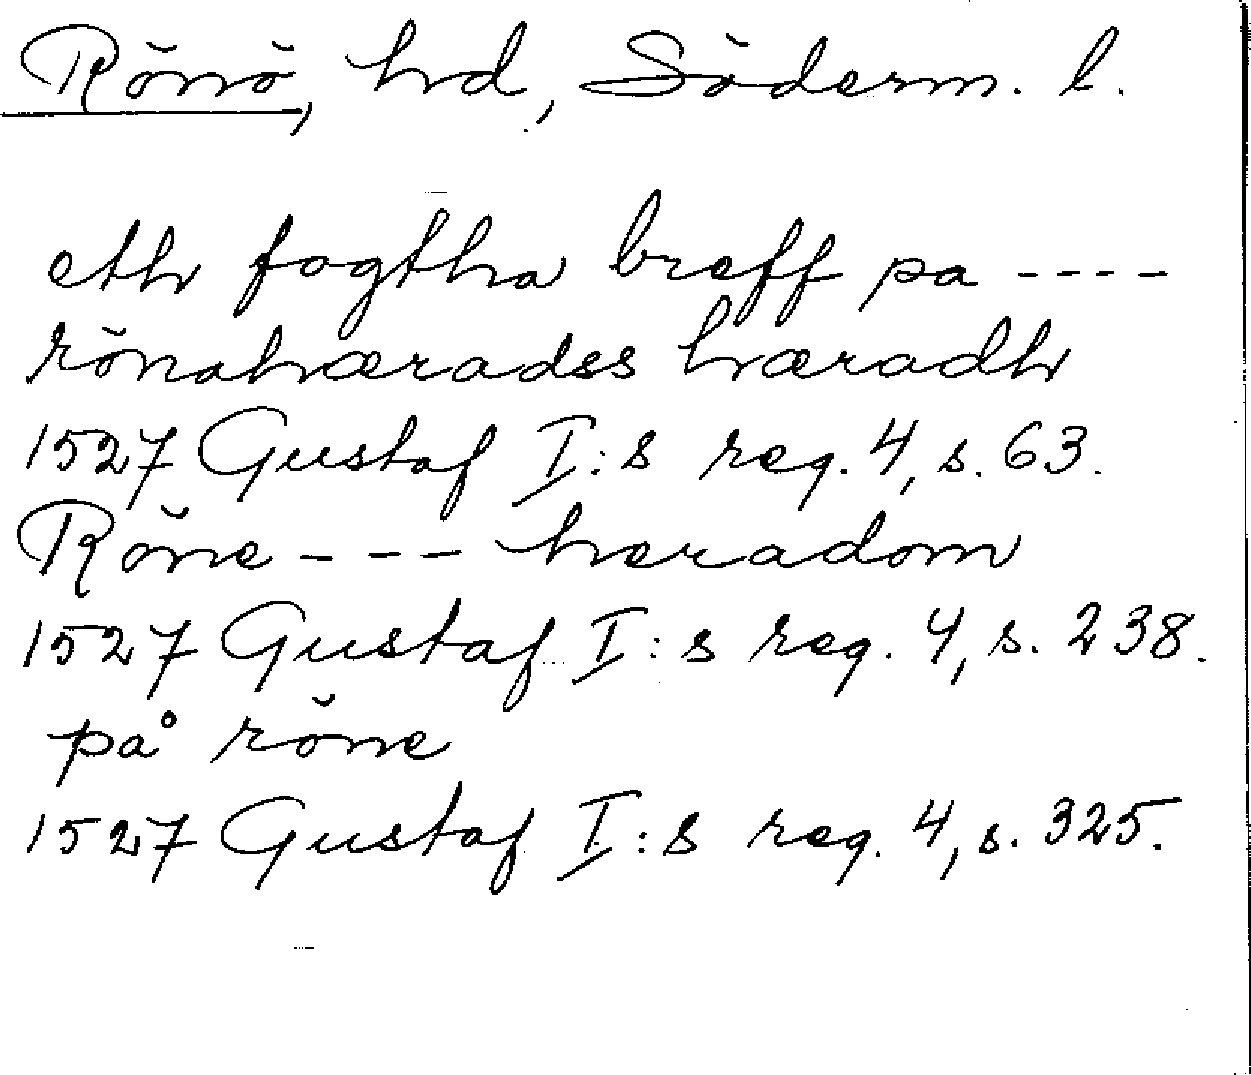 Rönö, hd, Söderm. l.
eth fogtha breff pa ----
rönahæradss hæradh
1527 Gustaf I:s reg. 4, s. 63.
Röne --- hæradom
1527 Gustaf I:s reg. 4, s. 238.
på röne
1527 Gustaf I:s reg. 4, s. 325.